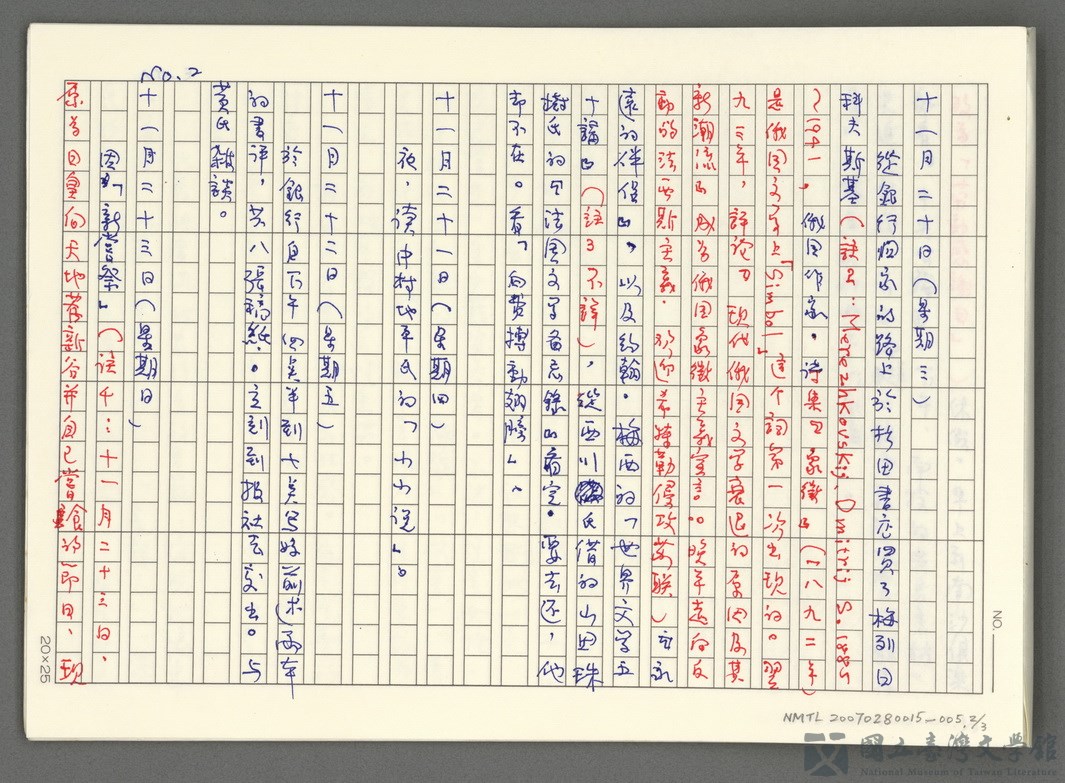 No. 2
十一月二十日(星期三)
從銀行回家的路上於杉田書店買了梅列日
科夫斯基(註2:Merezhkovskij, Dmitrij S. 1865
~1941,俄国作家。詩集『象徵』(一八九二年)
是俄国文学上「Simbol」這个詞第一次出現的。翌
九三年,評論『現代俄国文学衰退的原因及其
新潮流』成為俄国象徵主義宣言。晚年走向反
動的法西斯主義.歡迎希特勒侵攻蘇联)『永
遠的伴侶』,以及約翰.梅西的「世界文学五
十講』(註3不詳),從西川氏借的山田珠
樹氏的『法国文学备忘錄』看完.要去还,他
却不在。看「白費搏動翅膀」。
十一月二十一日(星期四)
夜,讀中村地平氏的「小小說」。
十一月二十二日(星期五)
於銀行自下午四点半到七点写好前术(兩年
的書评,共八張稿紙.立刻到报社去交出。与
黃氏雜談。
十一月二十三日(星期日)
因「新嘗祭」(註4:十一月二十三日、
原為日皇向天地荐新谷并自己嘗 的節日、現
20×25
NO.
NMTL 20070280015-005, 2/3
國立臺灣文學館
National Museum of Taiwan Literature